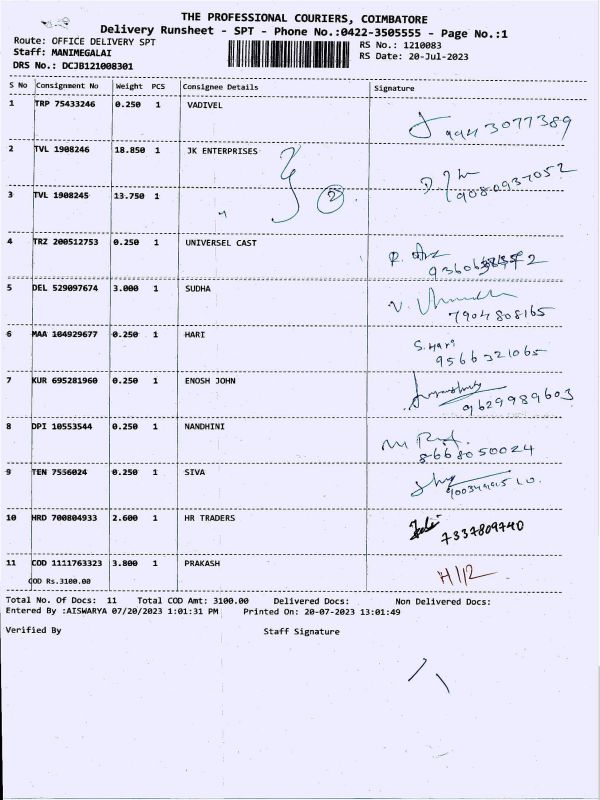 THE PROFESSIONAL COURIERS, COIMBATORE
Delivery Runsheet - SPT - Phone No.:0422-3505555 - Page No.:1
Route: OFFICE DELIVERY SPT
Staff: MANIMEGALAI
DRS No.: DCJB121008301
RS No.: 1210083
RS Date: 20-Jul-2023
S No Consignment No Weight PCS Consignee Details Signature
1 TRP 75433246 0.250 1 VADIVEL
9943077389
2 TVL 1908246 18.850 1 JK ENTERPRISES
9080937052
2
3 TVL 1908245 13.750 1
4 TRZ 200512753 0.250 1 UNIVERSEL CAST
5 DEL 529097674 3.000 1 SUDHA
7904808165
6 MAA 104929677 0.250 1 HARI
S. Hari
9566321065
7 KUR 695281960 0.250 1 ENOSH JOHN
9629989603
8 DPI 10553544 0.250 1 NANDHINI
8668050024
9 TEN 7556024 0.250 1 SIVA
10 HRD 700804933 2.600 1 HR TRADERS
7337809740
11 COD 1111763323 3.800 1 PRAKASH
COD Rs.3100.00
H112
Total No. Of Docs: 11 Total COD Amt: 3100.00 Delivered Docs: Non Delivered Docs:
Entered By :AISWARYA 07/20/2023 1:01:31 PM Printed On: 20-07-2023 13:01:49
Verified By Staff Signature